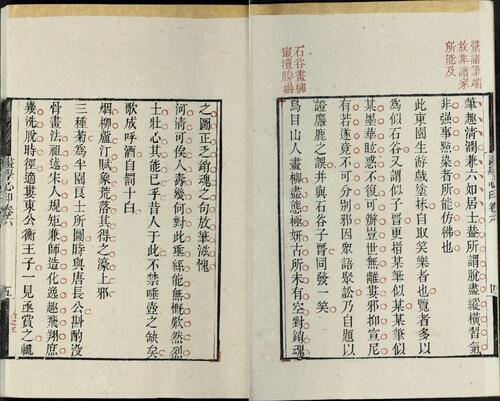 諸筆端
故非諸家
所能及
筆趣清潤兼六如居士蓋所謂脫盡縱橫習氣
非强事點染者所能彷彿也
此東園生游戲塗抹自取笑樂者也覽者多以
為似石谷又謂似子晉更指某筆似某某筆似
某墨華眩惑不復可辦豈世無離婁邪柳宣尼
有若遂竟不可分別邪因衆諳聚訟乃自題以
證麋鹿之誤并與石谷子晉同發一笑
石谷畫柳
擅勝場
烏目山人畫柳盡態極妍古所未有空對銷魂
之圖正之銷魂之句放筆滁愧
河清可俟人壽幾何對此垂絲能無慨歎然烈
士壯心其能已乎昔人于此不禁唾壺之缺矣
歌成呼酒自罰十白
煙柳廬汀賦象荒落其得之濠上邪
三種菊為半園良士所圖時與唐長公斟酌沒
骨畫法祖述宋人規矩兼師造化逸趣飛翔庶
幾洗脫時徑適婁東公衡王子一見亟賞之輒
畫學心印卷六 五